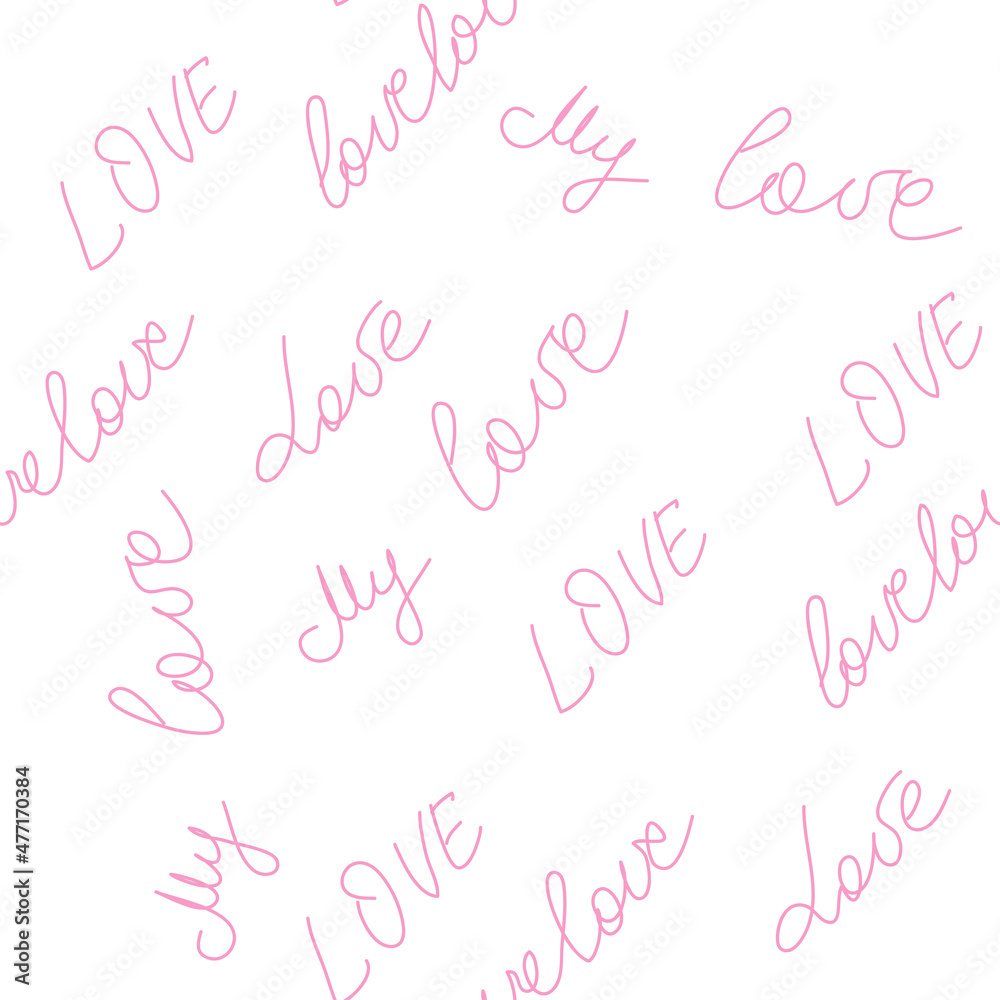 LOVE lovelov My love
relove Love love LOVE
love My LOVE lovelov
My LOVE relove Love
Adobe Stock | #477170384